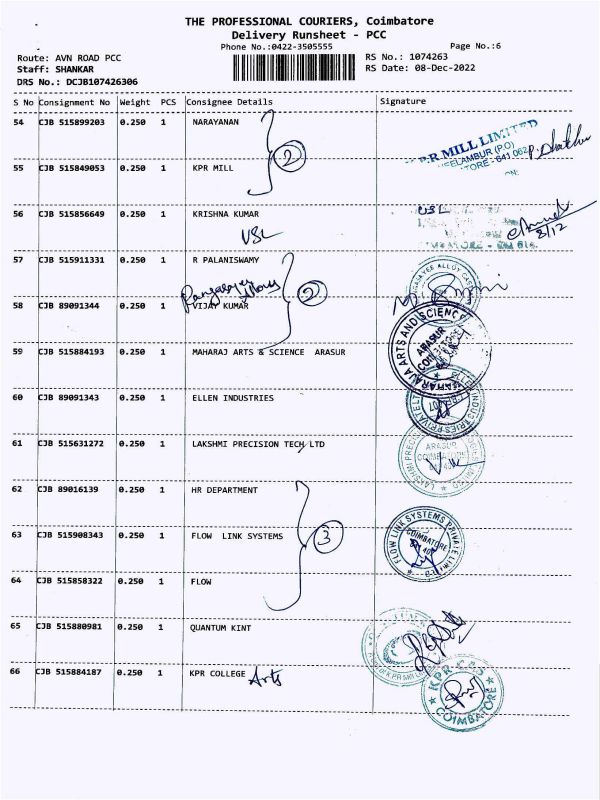 THE PROFESSIONAL COURIERS, Coimbatore
Delivery Runsheet - PCC
Phone No.:0422-3505555
Page No.:6
Route: AVN ROAD PCC
RS No.: 1074263
Staff: SHANKAR
RS Date: 08-Dec-2022
DRS No.: DCJB107426306
S No Consignment No Weight PCS Consignee Details Signature
54 CJB 515899203 0.250 1 NARAYANAN
2
P.R MILL LIMITED
EELAMBUR (P.O)
TORE - 641 062
55 CJB 515849053 0.250 1 KPR MILL
56 CJB 515856649 0.250 1 KRISHNA KUMAR
VSL
8/12
57 CJB 515911331 0.250 1 R PALANISWAMY
2
58 CJB 89091344 0.250 1 VIJAY KUMAR
59 CJB 515884193 0.250 1 MAHARAJ ARTS & SCIENCE ARASUR
MAHARAJA ARTS AND SCIENCE
ARASUR
60 CJB 89091343 0.250 1 ELLEN INDUSTRIES
61 CJB 515631272 0.250 1 LAKSHMI PRECISION TECH LTD
ARASUR
COIMBATORE
62 CJB 89016139 0.250 1 HR DEPARTMENT
63 CJB 515908343 0.250 1 FLOW LINK SYSTEMS
3
FLOW LINK SYSTEMS PRIVATE LIMITED
COIMBATORE
64 CJB 515858322 0.250 1 FLOW
65 CJB 515880981 0.250 1 QUANTUM KINT
66 CJB 515884187 0.250 1 KPR COLLEGE Arts
KPR CAS
COIMBATORE